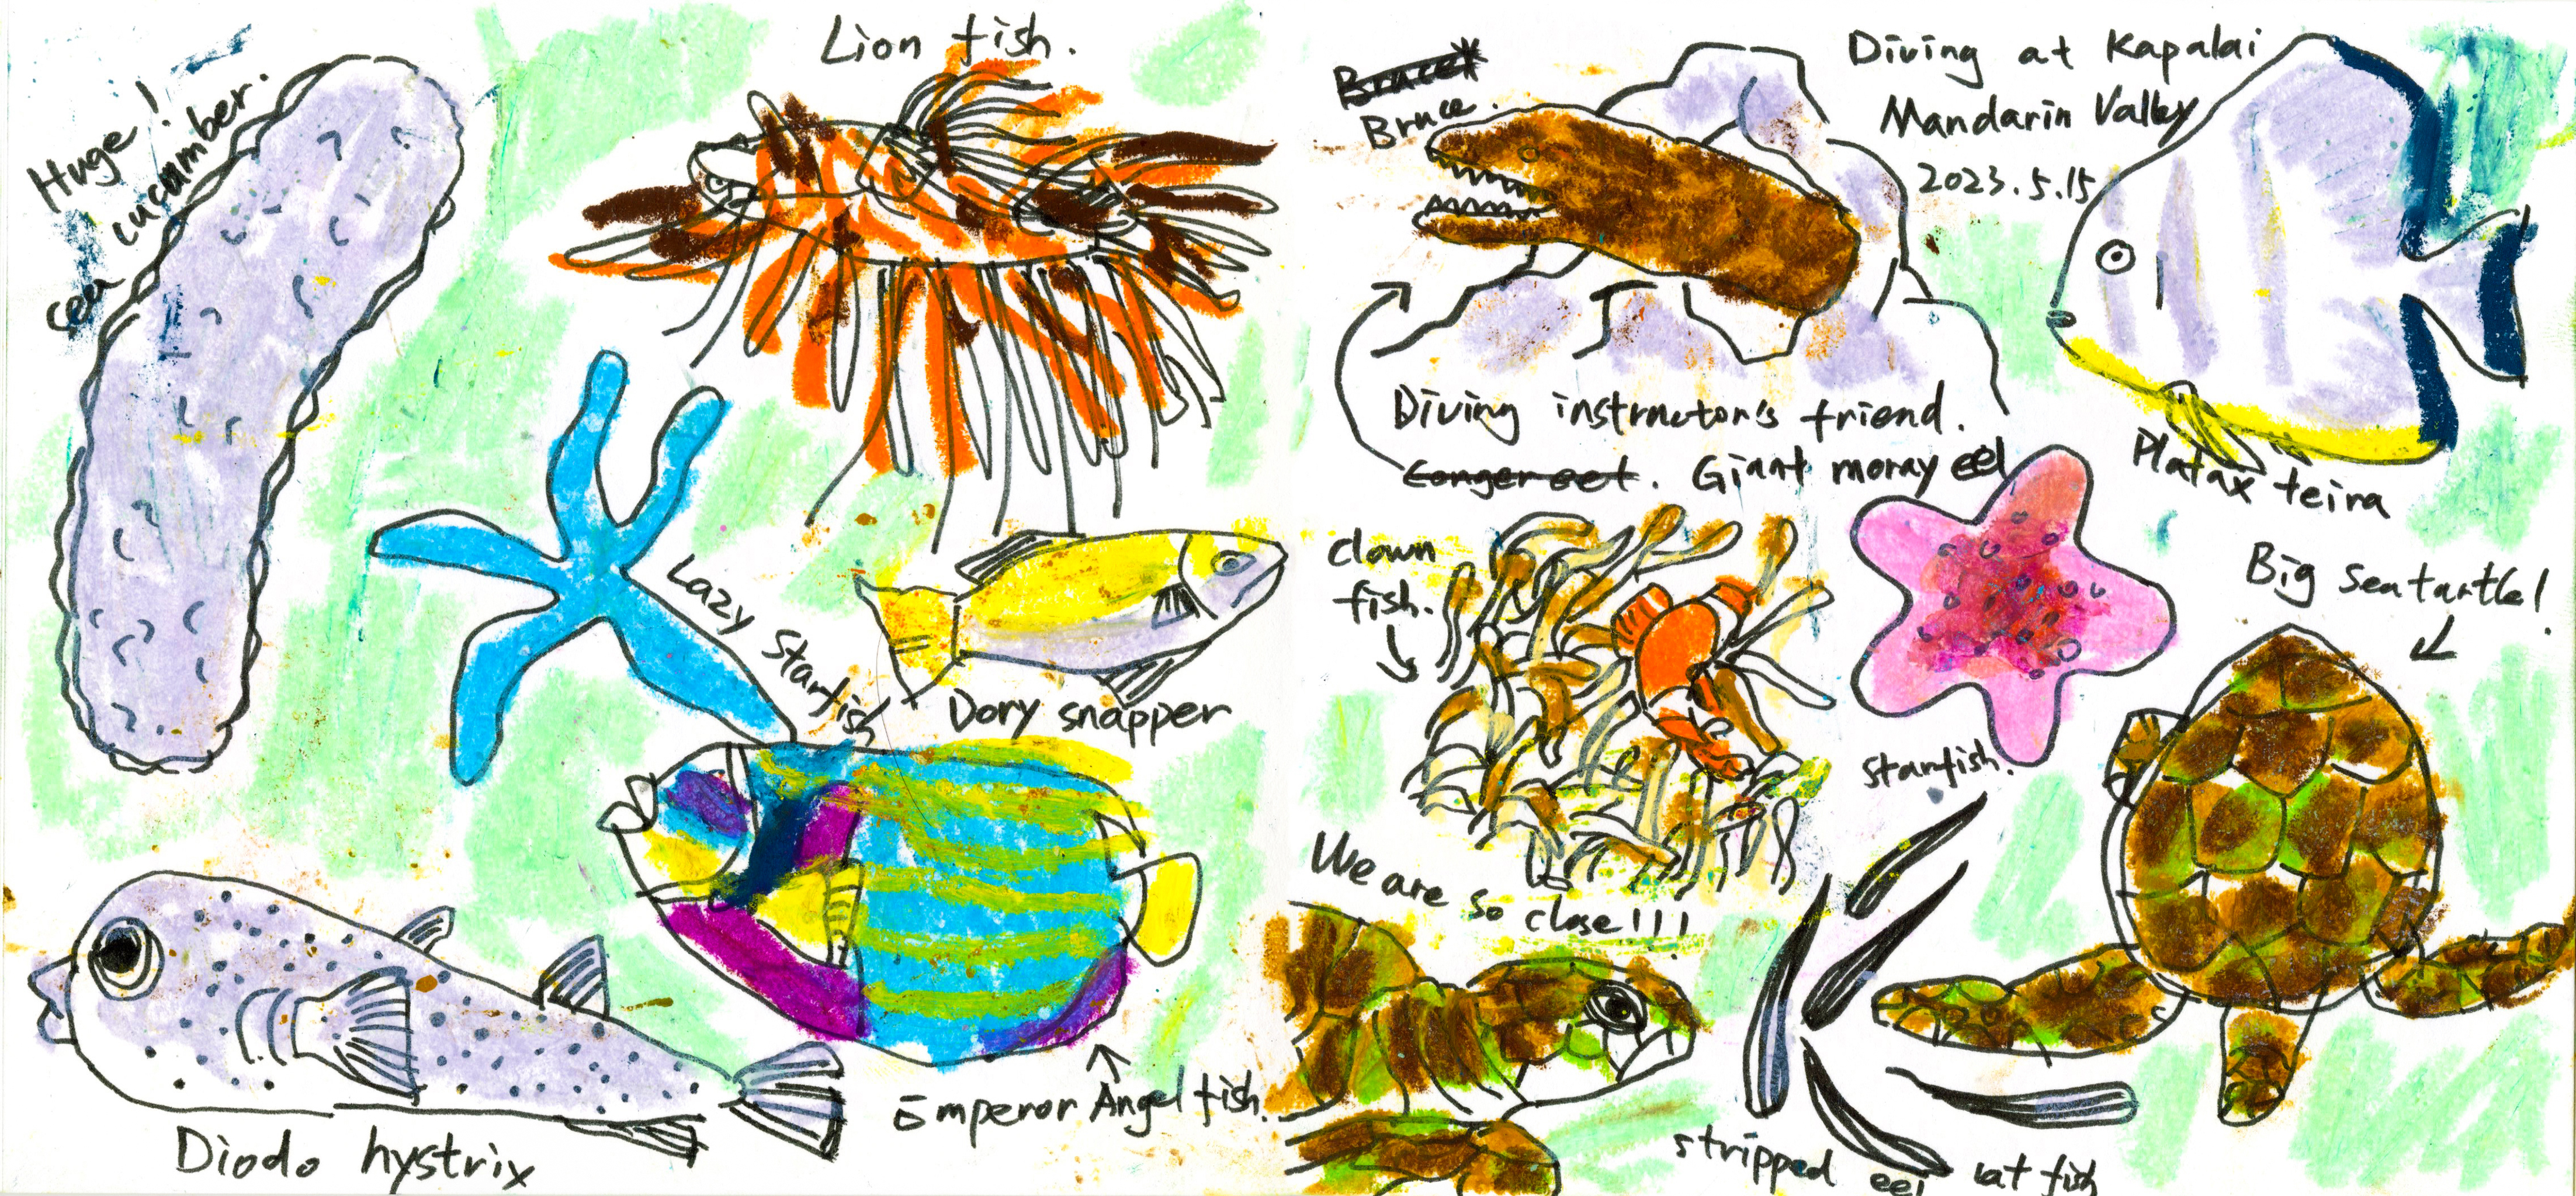 Huge!
sea cucumber.
Lion fish.
Lazy Starfish
Dory snapper
Emperor Angel fish.
Diodo hystrix
Bruce
Bruce.
Diving at Kapalai
Mandarin Valley
2023.5.15
Diving instructor's friend.
Conger eel. Giant moray eel
Platax teira
clown
fish.
starfish.
Big seaturtle!
We are so close!!!
stripped eel cat fish